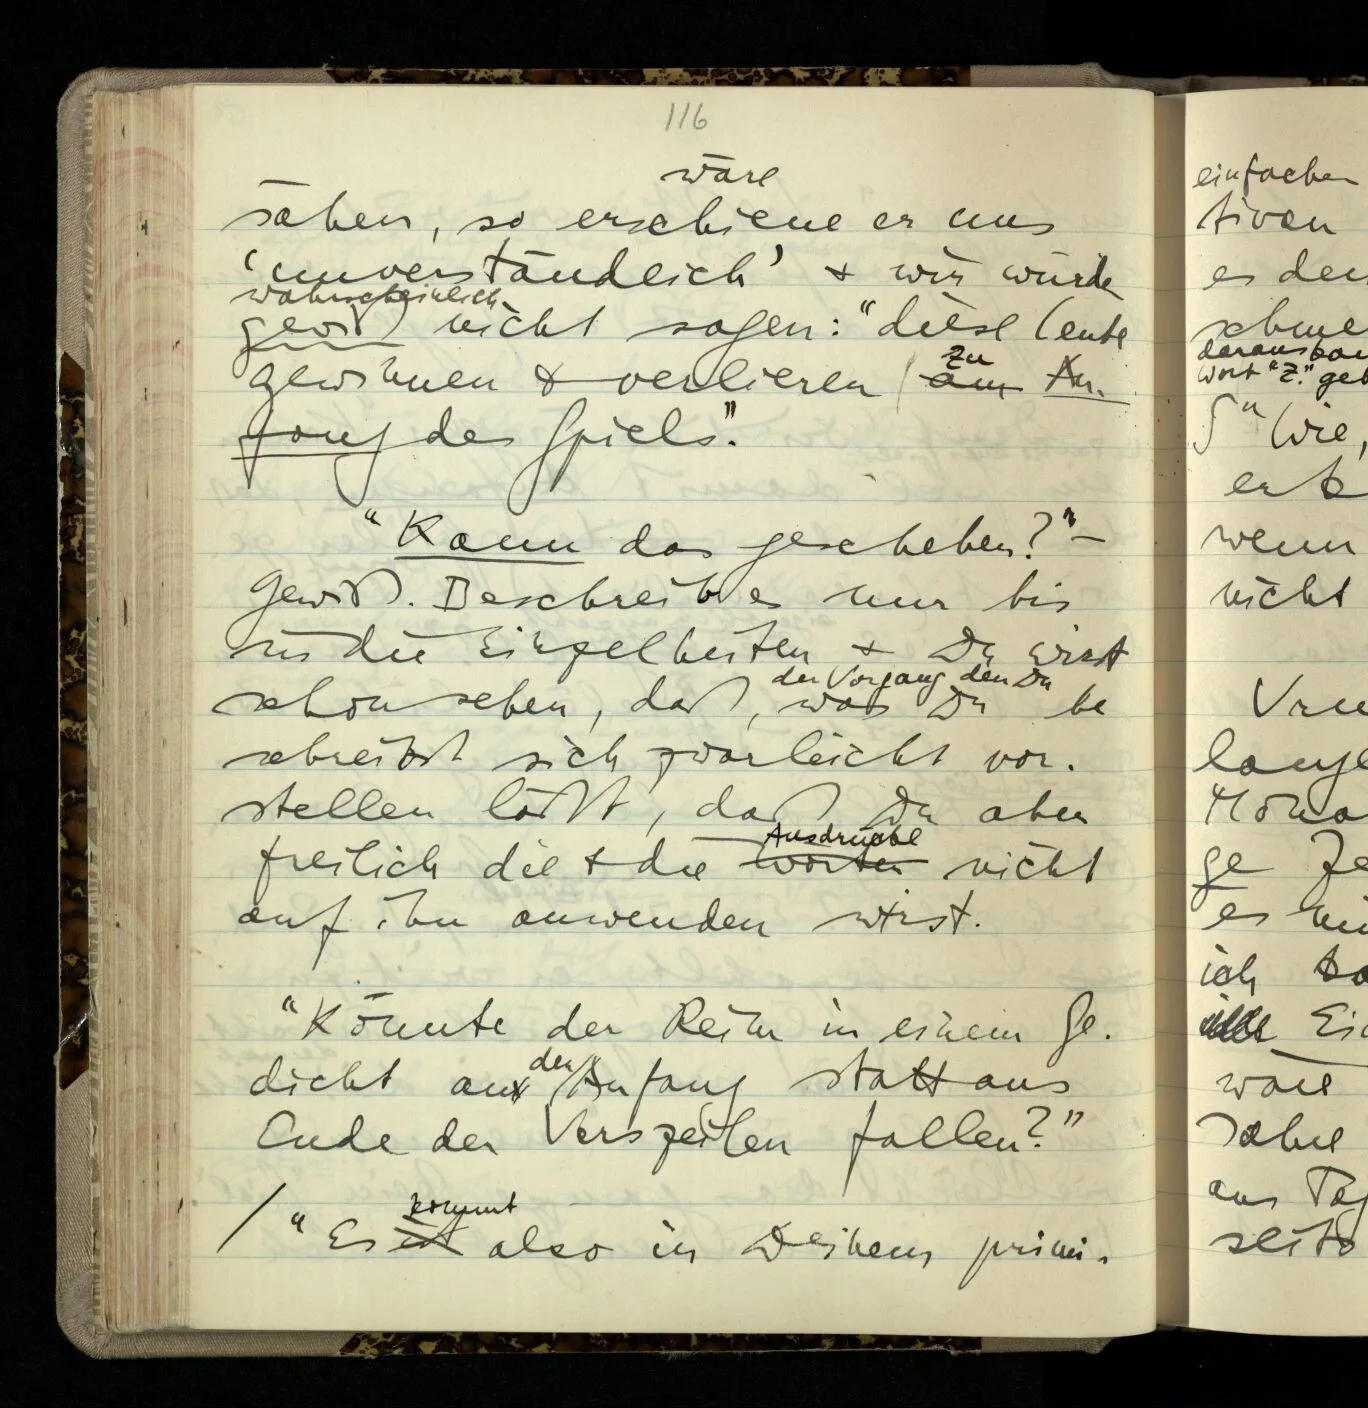 116
wäre
sähen, so erschiene er uns
'unverständlich' & wir würde
wahrscheinlich
gewiß nicht sagen: "diese Leute
zu
gewinnen & verlieren am An-
fang des Spiels".
"Kann das geschehen?" –
Gewiß. Beschreib es nur bis
in die Einzelheiten & Du wirst
der Vorgang den Du
schon sehen, daß, was Du be
schreibst sich zwar leicht vor-
stellen läßt, daß Du aber
Ausdrücke
freilich die & die Worten nicht
auf ihn anwenden wirst.
"Könnte der Reim in einem Ge-
den
dicht auf Anfang statt aus
Ende der Verszeilen fallen?"
kommt
/ "Es ist also in Deinem primi-
einfachen
tiven
es den
schme
Wort "Z." geb
S" (wie,
wenn
nicht
lange
ge Ze
es
ich
wäre
Jahre
aus Tag